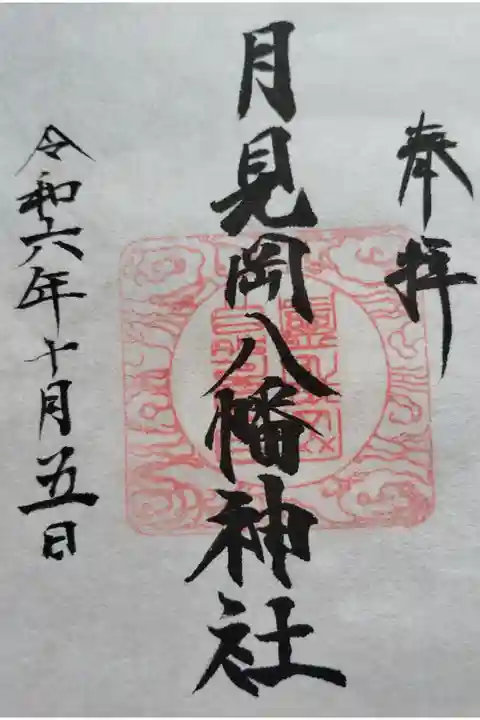 奉拝
月見岡八幡神社
令和六年十月五日